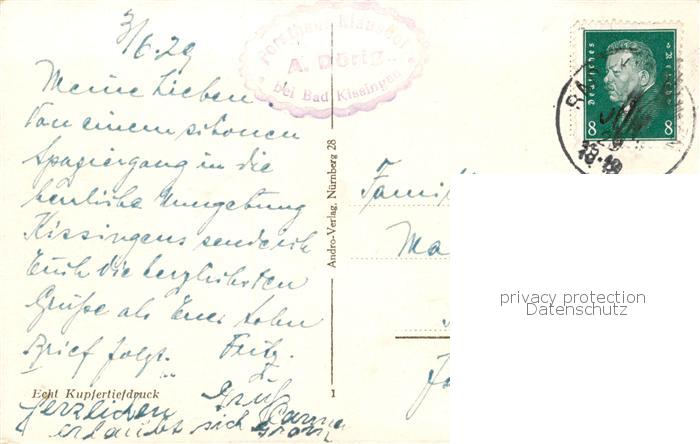 3/6.29
Meine Lieben
Von einem schönen
Spaziergang in die
herrliche Umgebung
Kissingens sende ich
Euch die herzlichsten
Grüße als Euer Sohn
Brief folgt. Fritz.
Echt Kupfertiefdruck
Herzlichen Gruß
erlaubt sich
Andro-Verlag, Nürnberg 28
1
Forsthaus Klaushof
A. Dörig
bei Bad Kissingen
Deutsches Reich
8 8
Famil
Ma
privacy protection
Datenschutz